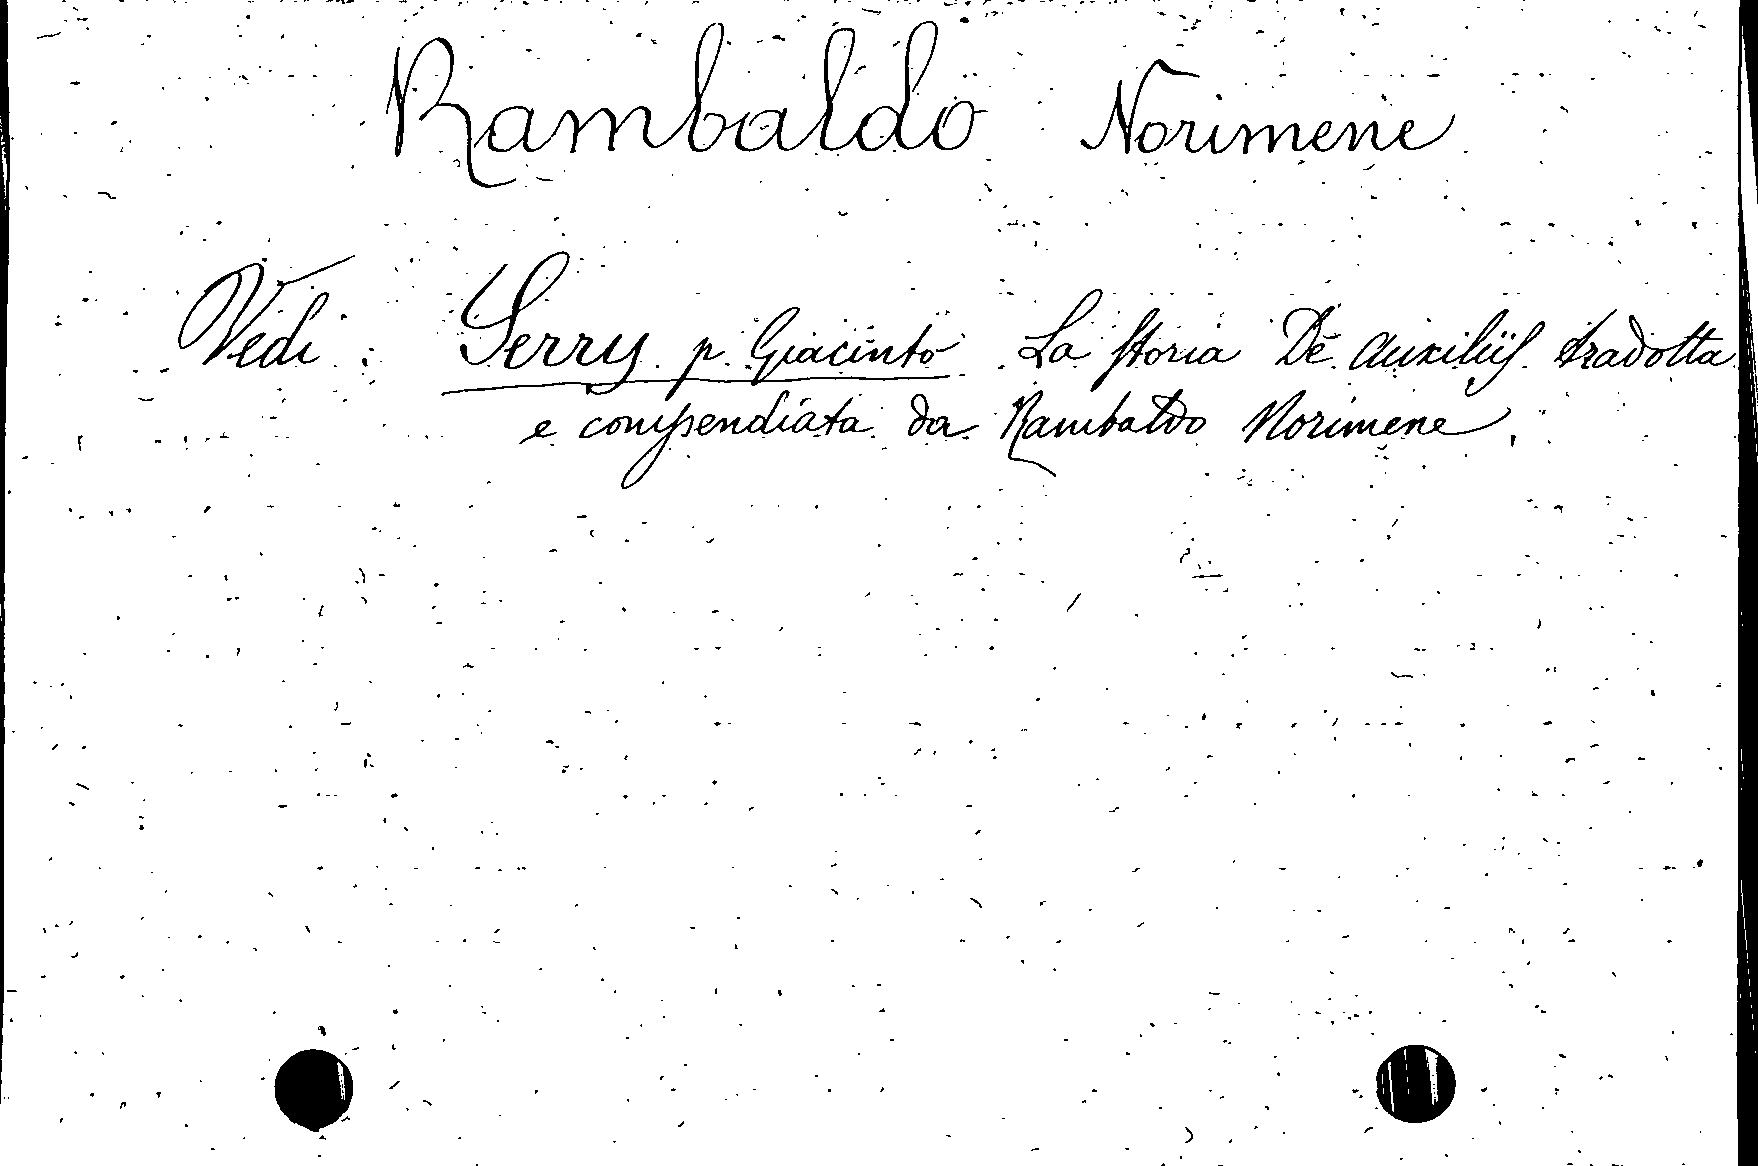 Rambaldo Norimene
Vedi : Serry p. Giacinto La storia De auxiliis tradotta
e compendiata da Rambaldo Norimene.